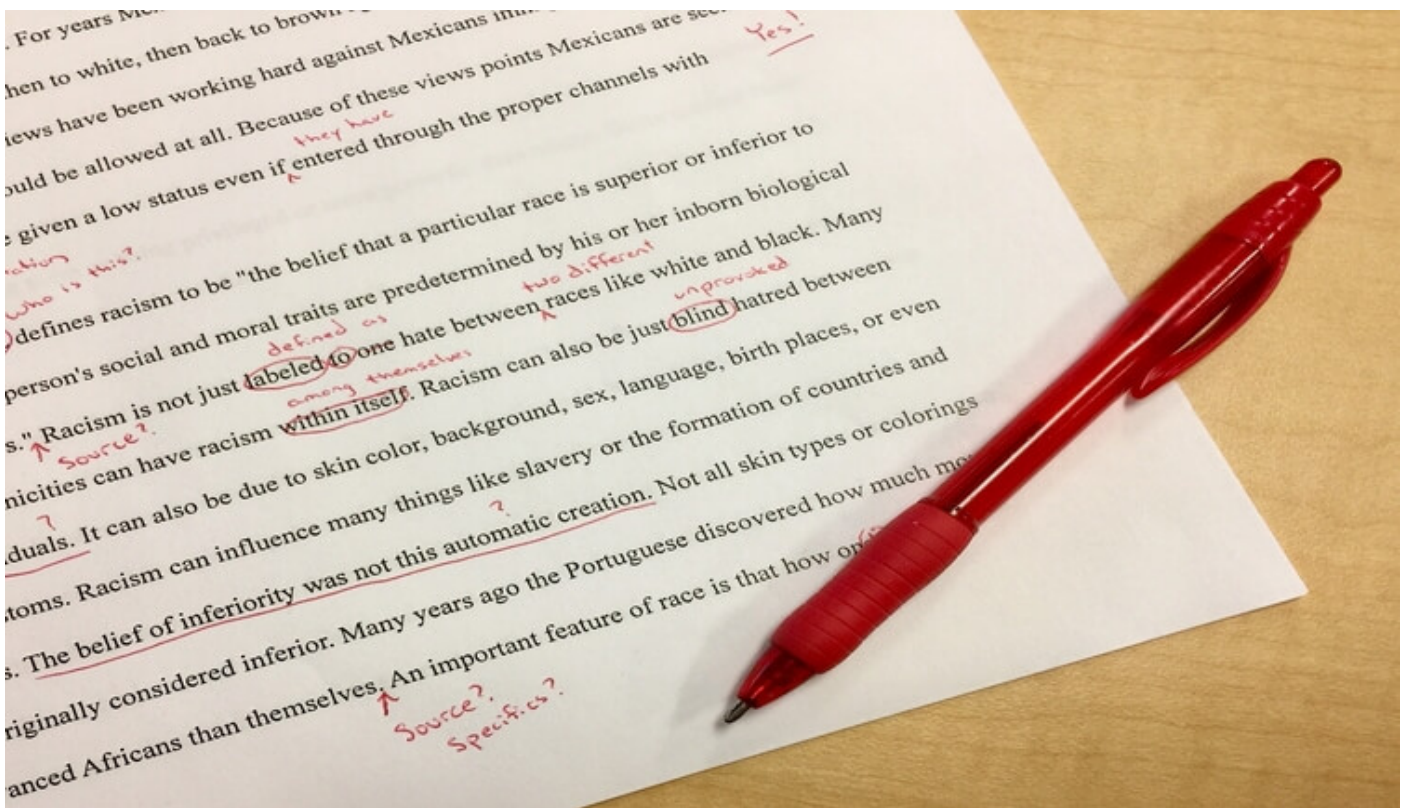 . For years
then to white, then back to brown
iews have been working hard against Mexicans
Yes!
ould be allowed at all. Because of these views points Mexicans are see
they have
e given a low status even if entered through the proper channels with
who is this?
defines racism to be "the belief that a particular race is superior or inferior to
person's social and moral traits are predetermined by his or her inborn biological
defined as
two different
s." Racism is not just labeled to one hate between races like white and black. Many
Source?
among themselves
unprovoked
nicities can have racism within itself. Racism can also be just blind hatred between
?
duals. It can also be due to skin color, background, sex, language, birth places, or even
toms. Racism can influence many things like slavery or the formation of countries and
?
s. The belief of inferiority was not this automatic creation. Not all skin types or colorings
riginally considered inferior. Many years ago the Portuguese discovered how much mo
anced Africans than themselves. An important feature of race is that how
Source?
Specifics?